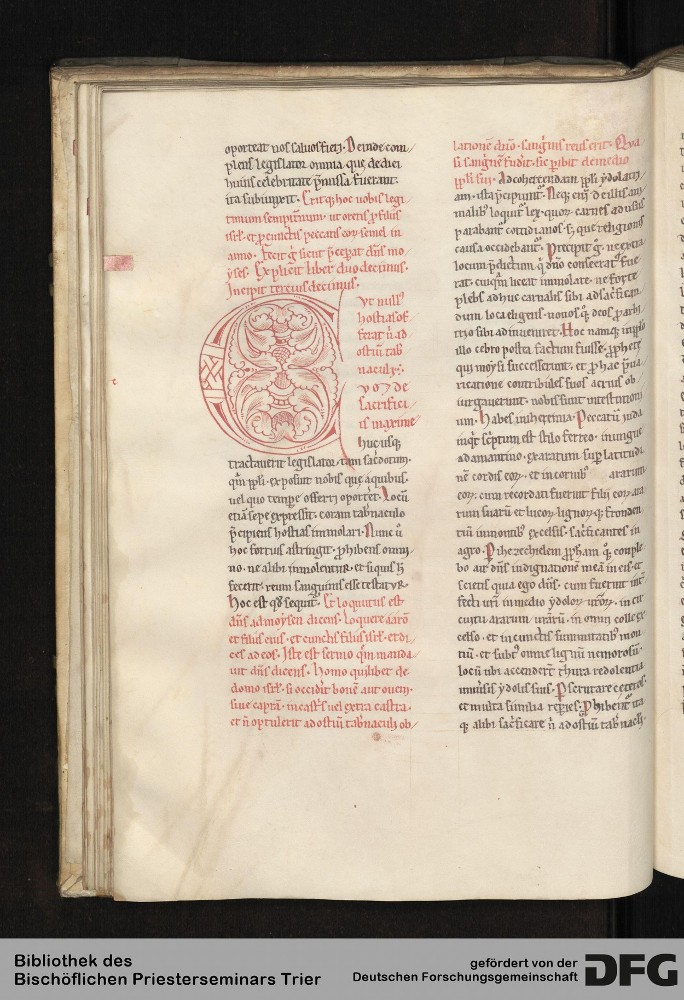 oporteat nos saluos fieri. Deinde com
plens legislator omnia. que de diei
huius celebritate p̄missa fuerant.
ita subiungit. Eritq; hoc uobis legi
timum sempiternum. ut oretis p̱ filiis
isrl̄. et p̱ cunctis peccatis eoꝝ semel in
anno. Fecit g̊ sicut p̄cepat dn̄s mo
yses. Explicit liber duodecimus.
Incipit tercius decimus.
Vt null'
hostias of
ferat n̄ ad
ostiū tab
naculi.
Quo de
sacrifici
is maxime
huc usq;
tractauerit legislator. tam sacerdotum.
qm̄ ipsi. exposuit nobis que a quibus.
uel quo tempe offerri oportet. Locū
etiā sepe expressit. coram tab'naculo
p̄cipiens hostias immolari. Nunc ū
hoc fortius astringit. p̱hibens omni
no. ne alibi immolentur. et siquis h̄
fecerit. reum sanguinis esse testatur.
Hoc est qd̄ sequit̄. Et locutus est
dn̄s ad moysen dicens. Loquere aarō
et filiis eius. et cunctis filiis isrl̄. et di
ces ad eos. Iste est sermo qm̄ manda
uit dn̄s dicens. Homo quilibet de
domo isrl̄. si occidit bouē aut ouem.
siue caprā. in castris uel extra castra.
et n̄ optulerit ad ostiū tab'naculi ob
lationē dn̄o. sanguinis reus erit. Qua
si sanguinē fudit. sic p̱ibit de medio
pp̄li sui. Ad cohercendam pp̄li ydolatri
am. ista p̄cipiunt̄. Neq; eni de illis ani
malib' loquit̄ lex. quoꝝ carnes ad usus
parabant̄ cottidianos. s; que religionis
causa occidebant̄. Precipit g̊. ne extra
locum p̄dictum q' dn̄o consecrat' fue
rat. cuiq̄m liceat immolare. ne forte
plebs adhuc carnalis sibi ad sac'fican
dum loca eligens. nouos q; deos p̱ arbi
trio sibi adinueniret. Hoc namq; in pp̄lo
illo crebro postea factum fuisse. p̱phete
qui moysi successerunt. et p̱ hac p̄ua
ricatione contribules suos acrius ob
iurgauerunt. nobis sunt in testimoni
um. Habes in iheremia. Peccatū iuda
inq't sc'ptum est stilo ferreo. in ungue
adamantino. exaratum sup̱ latitudi
nē cordis eoꝝ. et in cornib' ararum
eoꝝ. cum recordati fuerint filii eoꝝ ara
rum suarū et lucoꝝ. lignoꝝ q; fronden
tiū in montib' excelsis. sac'ficantes in
agro. P ihezechielem p̱ph̄am q̊q; comple
bo ait dn̄s indignationē meā in eis. et
scietis quia ego dn̄s. cum fuerint int̄
fecti urī in medio ydoloꝝ ur̄oꝝ. in cir
cuitu ararum ur̄arū. in omni colle ex
celso. et in cunctis summitatib' mon
tiū. et subt' omne lignū nemorosū.
locū ubi accenderūt thura redolentia
uniu'sis ydolis suis. Pscrutare ceteros.
et multa similia rep̱ies. Phibent̄ ita
q; alibi sac'ficare n̄ ad ostiū tab'nacli.
Bibliothek des
Bischöflichen Priesterseminars Trier
gefördert von der
Deutschen Forschungsgemeinschaft
DFG